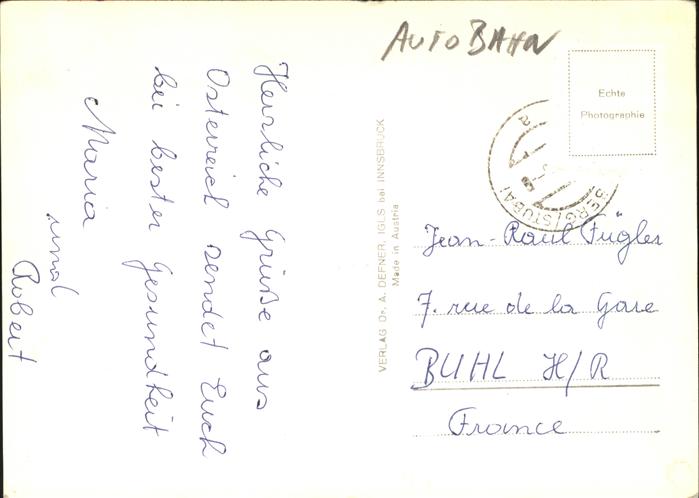 AUTOBAHN
Herzliche Grüße aus
Österreich sendet Euch
bei bester Gesundheit
Maria
und
Robert
VERLAG Dr. A. DEFNER, IGLS bei INNSBRUCK
Made in Austria
Echte
Photographie
(STUBAI
Jean-Paul Fügler
7. rue de la Gare
BUHL H/R
France